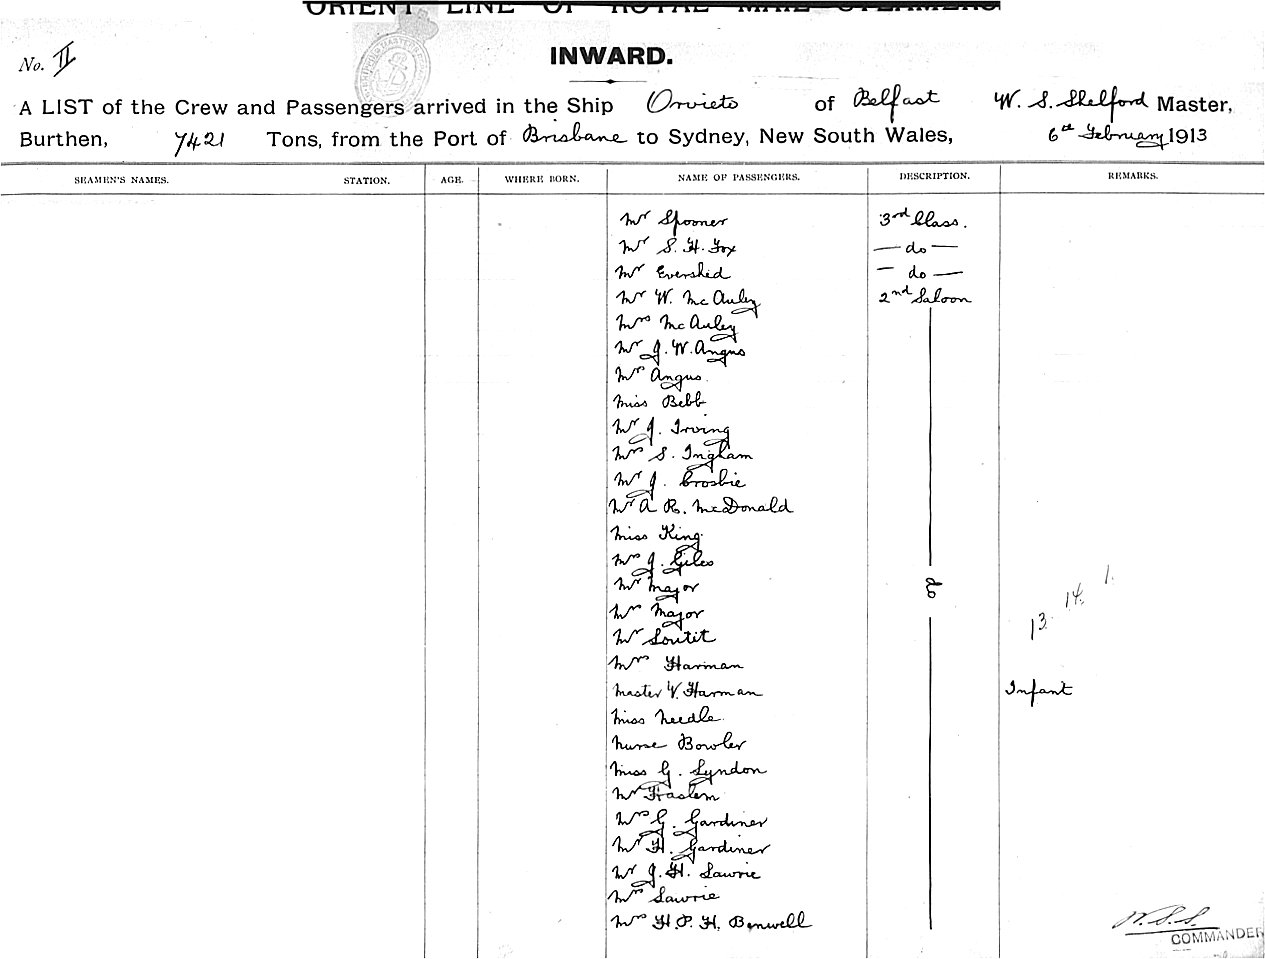 ORIENT LINE OF ROYAL MAIL STEAMERS
No. II
INWARD.
A LIST of the Crew and Passengers arrived in the Ship Orvieto of Belfast W. S. Shelford Master,
Burthen, 7421 Tons, from the Port of Brisbane to Sydney, New South Wales, 6th February 1913
SEAMEN'S NAMES. STATION. AGE. WHERE BORN. NAME OF PASSENGERS. DESCRIPTION. REMARKS.
Mr Spooner 3rd Class.
Mr S. H. Fox — do —
Mr Evershed — do —
Mr W. McAuley 2nd Saloon
Mrs McAuley
Mr J. W. Angus
Mrs Angus.
Miss Bebb
Mr J. Irving
Mrs S. Ingham
Mr J. Crosbie
Mr A R. McDonald
Miss King.
Mrs J. Giles
Mr Major do
Mrs Major
Mr Soutit
Mrs Harman
Master V. Harman Infant
Miss Needle.
Nurse Bowler
Miss G. Lyndon
Mr Haslem
Mrs G. Gardiner
Mr H. Gardiner
Mr J. H. Lawrie
Mrs Lawrie
Mrs H. P. H. Benwell
13. 14. 1.
W. S. S.
COMMANDER